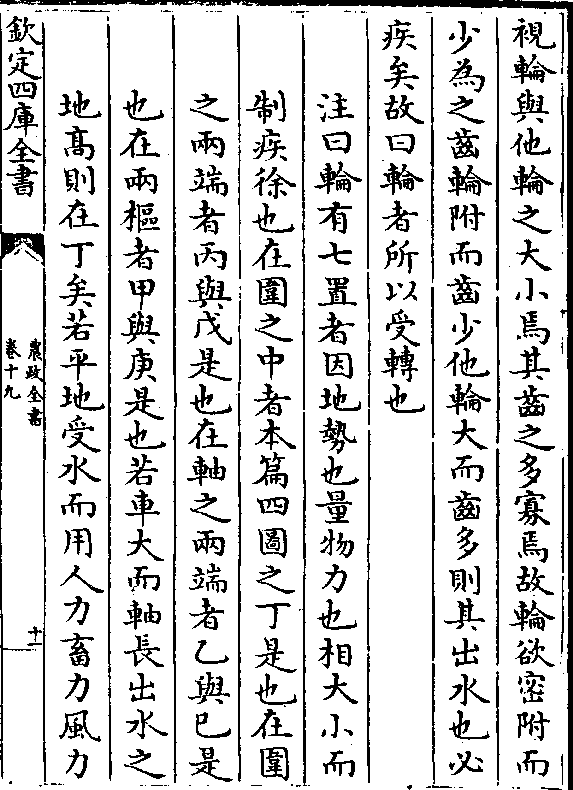 視輪與他輪之大小焉其齒之多寡焉故輪欲密附而
少為之齒輪附而齒少他輪大而齒多則其出水也必
疾矣故曰輪者所以受轉也
注曰輪有七置者因地勢也量物力也相大小而
制疾徐也在圍之中者本篇四圖之丁是也在圍
之兩端者丙與戊是也在軸之兩端者乙與已是
也在兩樞者甲與庚是也若車大而軸長出水之
地髙則在丁矣若平地受水而用人力畜力風力
欽定四庫全書
農政全書
卷十九
十一